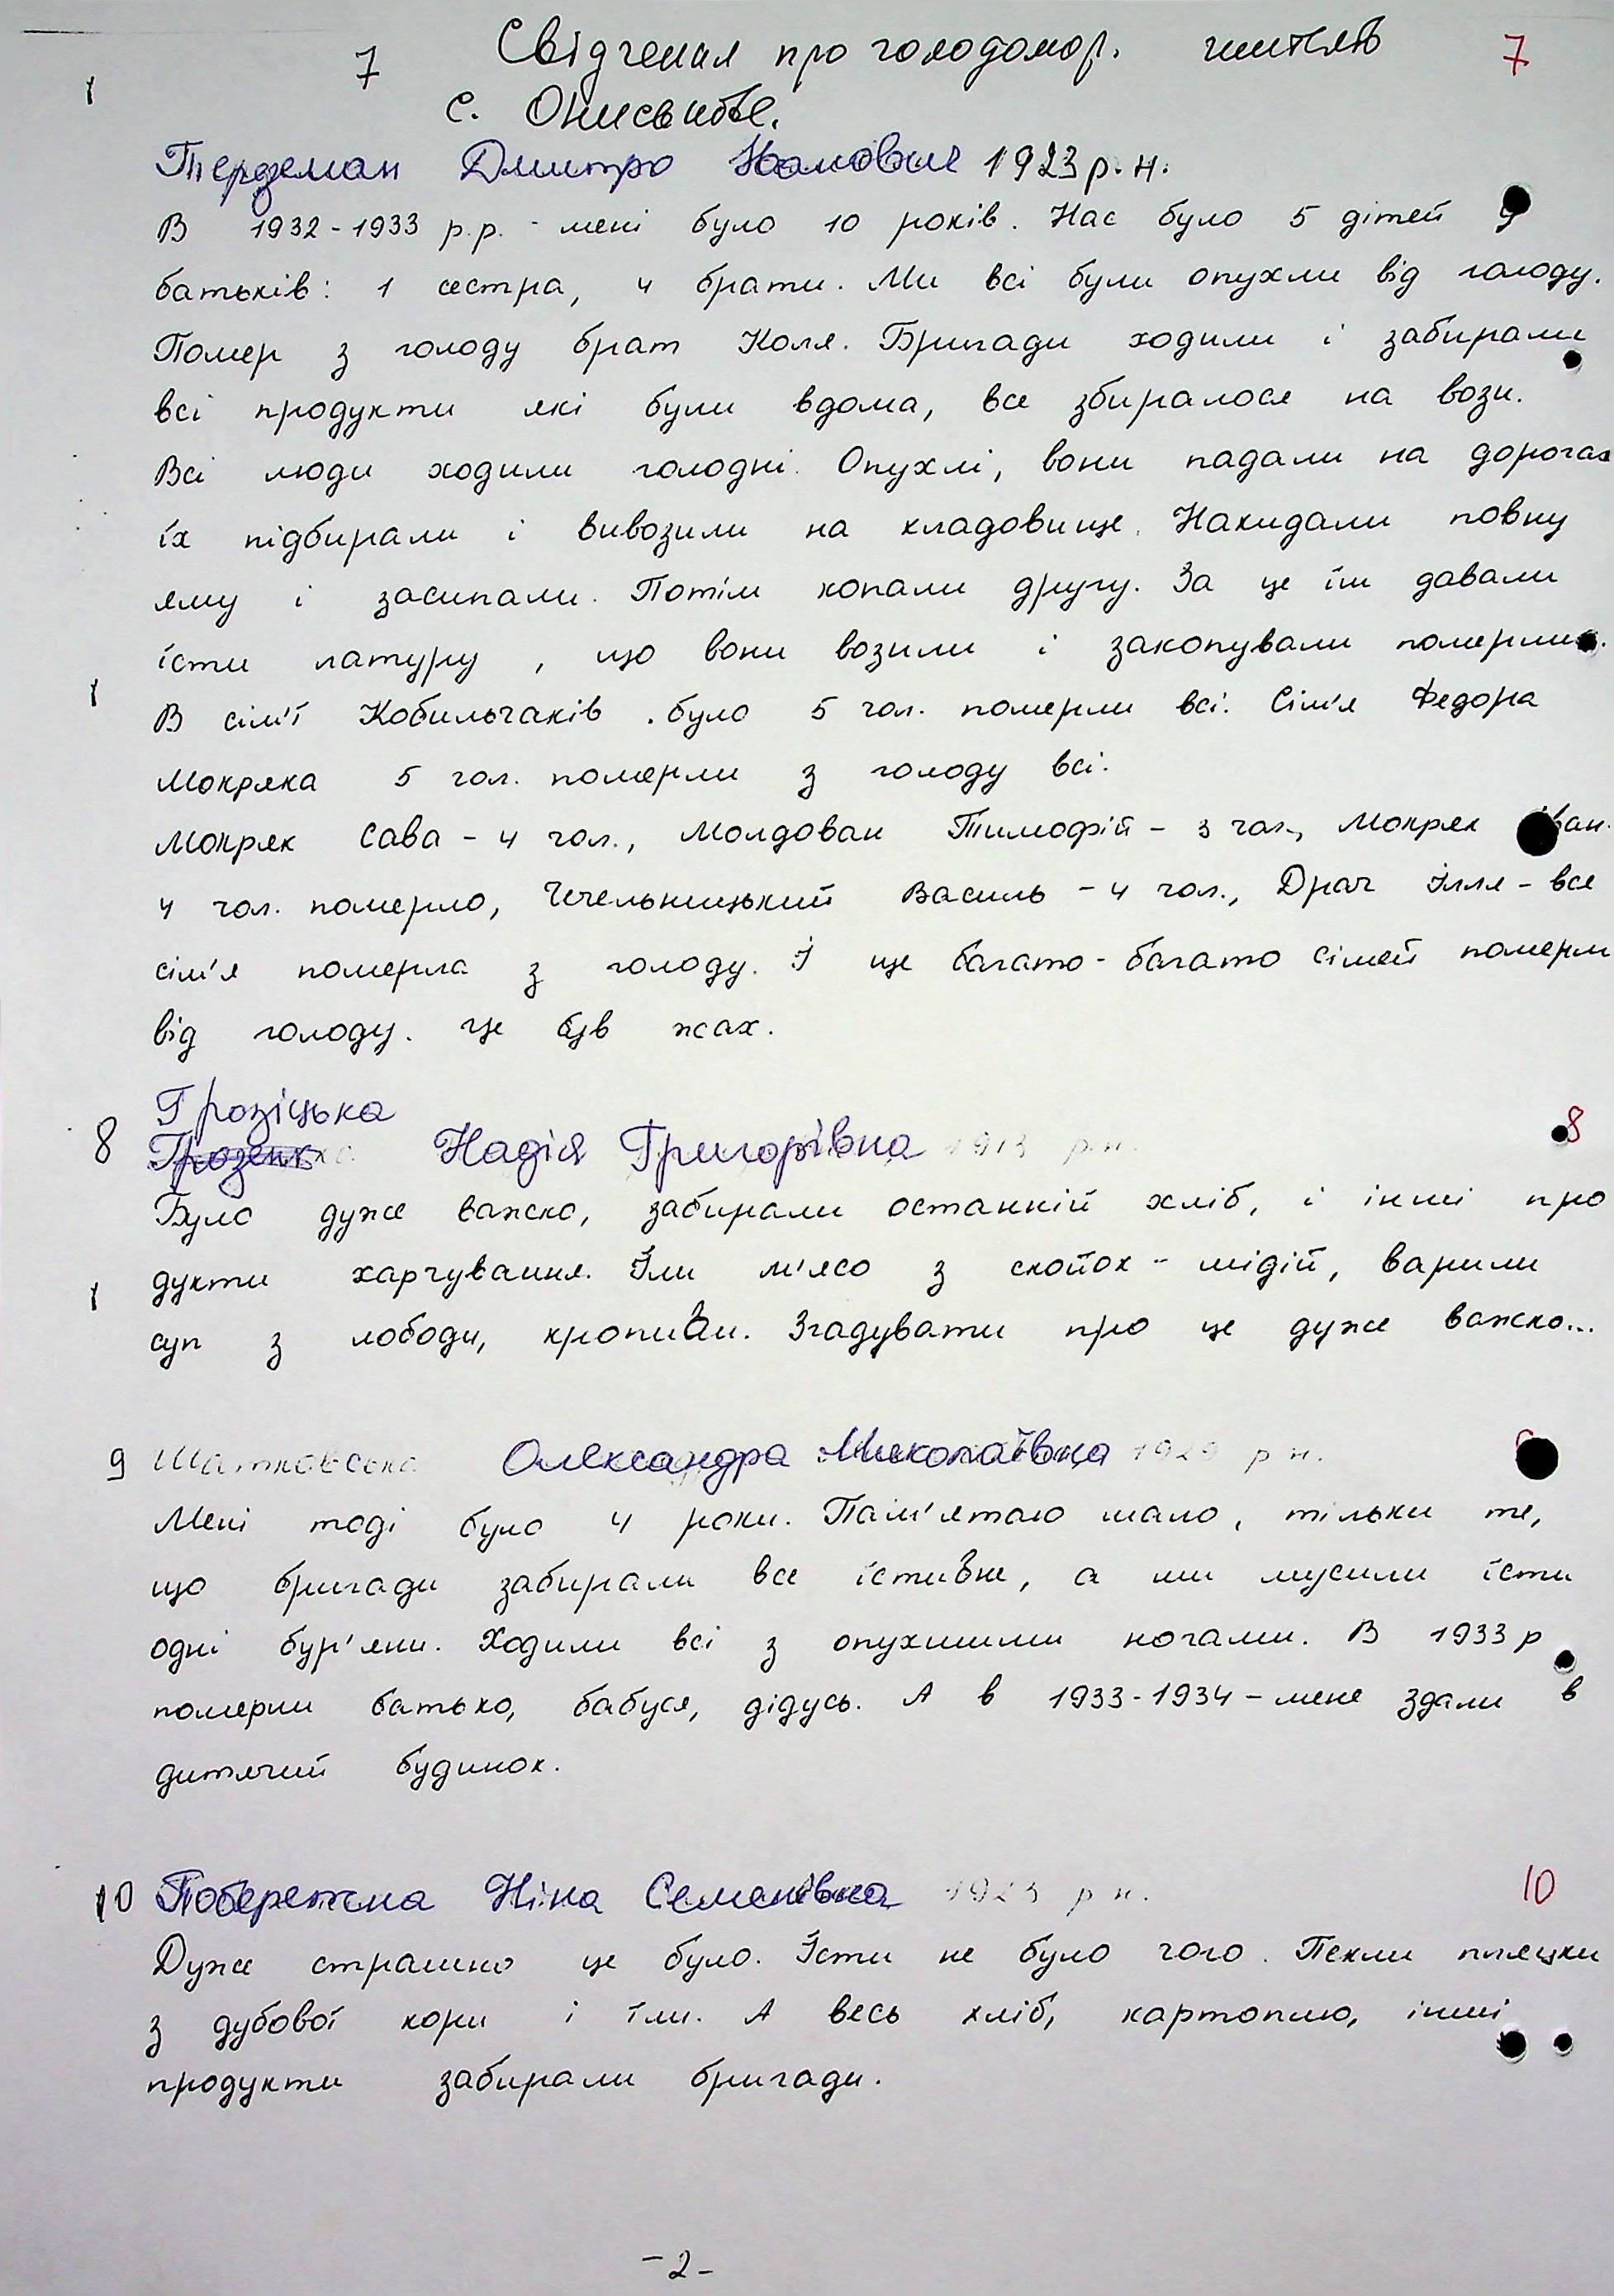 7 Свідчення про голодомор. жителів 7
с. ОнисьивЂе.
Тердеман Дмитро 1923 р.н.
В 1932-1933 р.р. - мені було 10 років. Нас було 5 дітей у
батьків: 1 сестра, 4 брати. Ми всі були опухли від голоду.
Помер з голоду брат Коля. Бригади ходили і забирали
всі продукти які були вдома, все збиралося на вози.
Всі люди ходили голодні. Опухлі, вони падали на дорогах
їх підбирали і вивозили на кладовище. Накидали повну
яму і засипали. Потім копали другу. За це їм давали
їсти матуру, що вони возили і закопували померлих.
В сім'ї Кобильчаків було 5 чол. померли всі. Сім'я Федора
Мокряка 5 чол. померли з голоду всі.
Мокряк Сава - 4 чол., Молдован Тимофій - 3 чол., Мокряк Іван.
4 чол. померло, Чечельницький Василь - 4 чол., Драч Ілля - вся
сім'я померла з голоду. І ще багато-багато сімей померли
від голоду. Це був жах.
Грозіцька
8 Надія Григорівна 1913 р.н. 8
Було дуже важко, забирали останній хліб, і інші про
дукти харчування. Їли м'ясо з скойок - мідій, варили
суп з лободи, кропиви. Згадувати про це дуже важко...
9 Шатковська Олександра Миколаївна 1929 р н.
Мені тоді було 4 роки. Пам'ятаю мало, тільки те,
що бригади забирали все їстивне, а ми мусили їсти
одні бур'яни. Ходили всі з опухшими ногами. В 1933 р
померли батько, бабуся, дідусь. А в 1933-1934 - мене здали в
дитячий будинок.
10 Побережна Ніна Семенівна 1923 р н. 10
Дуже страшно це було. Їсти не було чого. Пекли пляцки
з дубової кори і їли. А весь хліб, картоплю, інші
продукти забирали бригади.
-2-